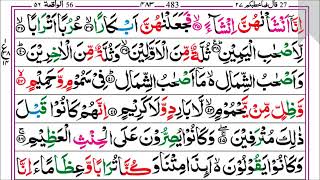 قال فما خطبكم ٢٧ 483 ٤٨٣ الواقعة ٥٦
اِنَّاۤ اَنْشَاْنٰهُنَّ اِنْشَآءً ۙ فَجَعَلْنٰهُنَّ اَبْكَارًا ۙ عُرُبًا اَتْرَابًا ۙ
لِّاَصْحٰبِ الْیَمِیْنِ ؕ ثُلَّةٌ مِّنَ الْاَوَّلِیْنَ ۙ وَثُلَّةٌ مِّنَ الْاٰخِرِیْنَ ؕ
وَاَصْحٰبُ الشِّمَالِ ۙ مَاۤ اَصْحٰبُ الشِّمَالِ ؕ فِیْ سَمُوْمٍ وَّحَمِیْمٍ ۙ
وَّظِلٍّ مِّنْ یَّحْمُوْمٍ ۙ لَّا بَارِدٍ وَّلَا كَرِیْمٍ اِنَّهُمْ كَانُوْا قَبْلَ
ذٰلِكَ مُتْرَفِیْنَ ۚ وَكَانُوْا یُصِرُّوْنَ عَلَی الْحِنْثِ الْعَظِیْمِ ۚ
وَكَانُوْا یَقُوْلُوْنَ ۙ اَئِذَا مِتْنَا وَكُنَّا تُرَابًا وَّعِظَامًا ءَاِنَّا